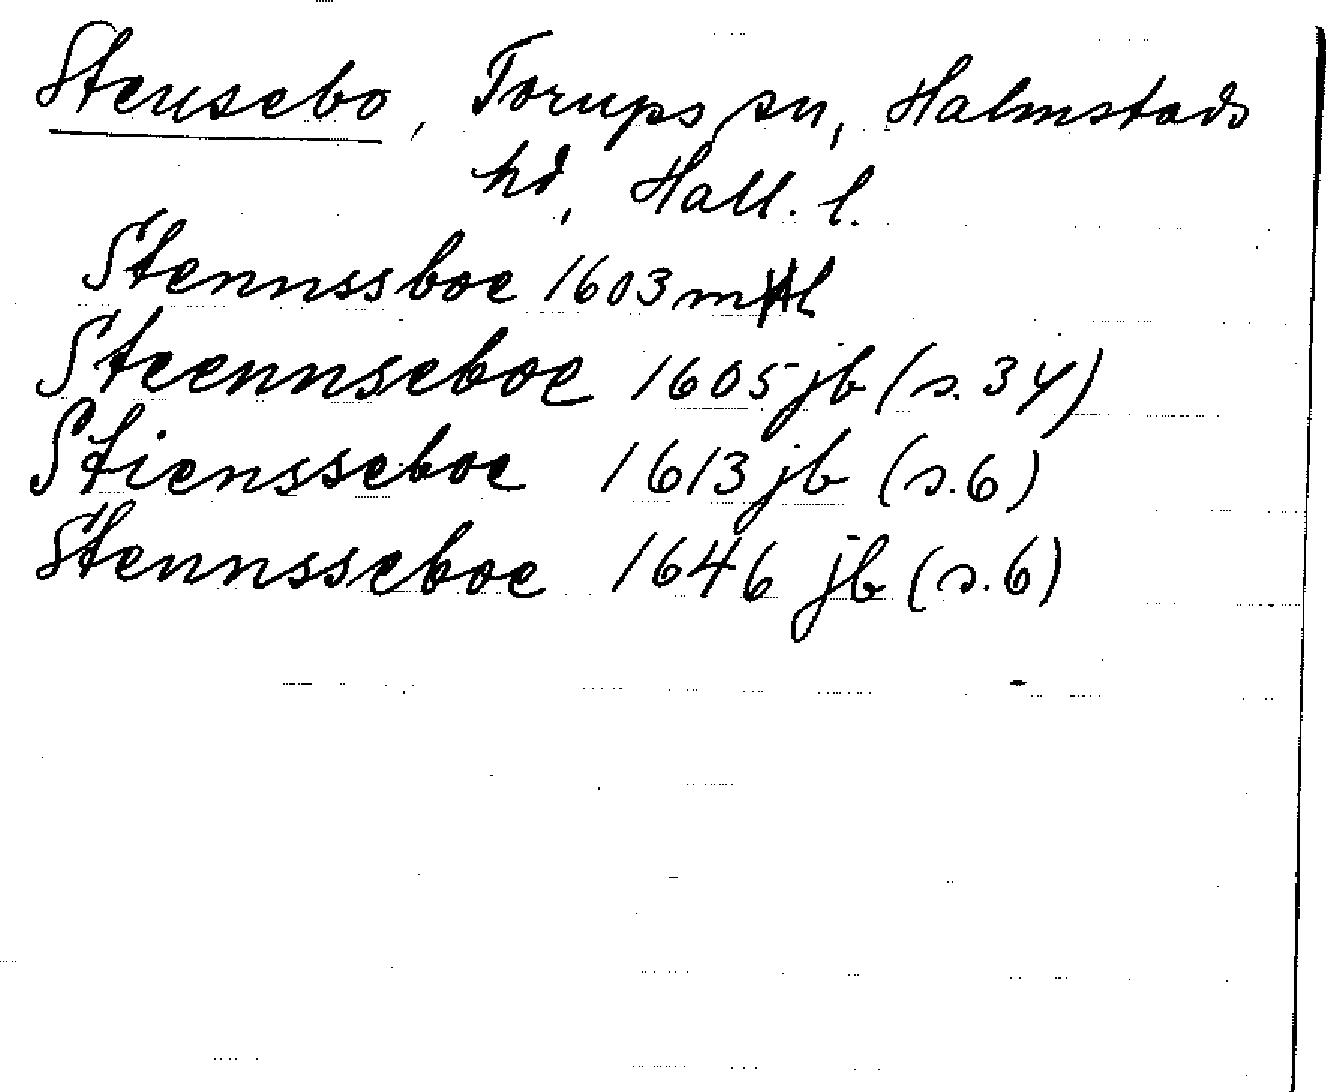 Stensebo, Torups sn, Halmstads
hd, Hall. l.
Stennssboe 1603 mtl
Steennseboe 1605 jb (s. 34)
Stiensseboe 1613 jb (s. 6)
Stennsseboe 1646 jb (s. 6)